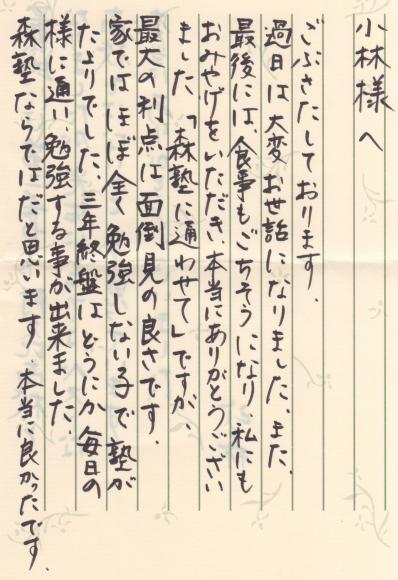 小林様へ
ごぶさたしております.
過日は大変お世話になりました.また、
最後には、食事もごちそうになり.私にも
おみやげをいただき.本当にありがとうござい
ました.「森塾に通わせて」ですが、
最大の利点は面倒見の良さです.
家ではほぼ全く勉強しない子で塾が
たよりでした.三年終盤はどうにか毎日の
様に通い、勉強する事が出来ました.
森塾ならではだと思います.本当に良かったです.